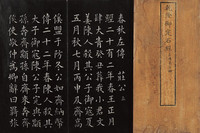 春秋左傳 莊公
經二十有二年春王正月
肆大眚癸丑葬我小君文
姜陳人殺其公子御寇夏
五月秋七月丙申及齊高
傒盟于防冬公如齊納幣
傳二十二年春陳人殺其
大子御寇陳公子完與顓
孫奔齊顓孫自齊來奔齊
侯使敬仲為卿辭曰羈旅
乾隆御定石經